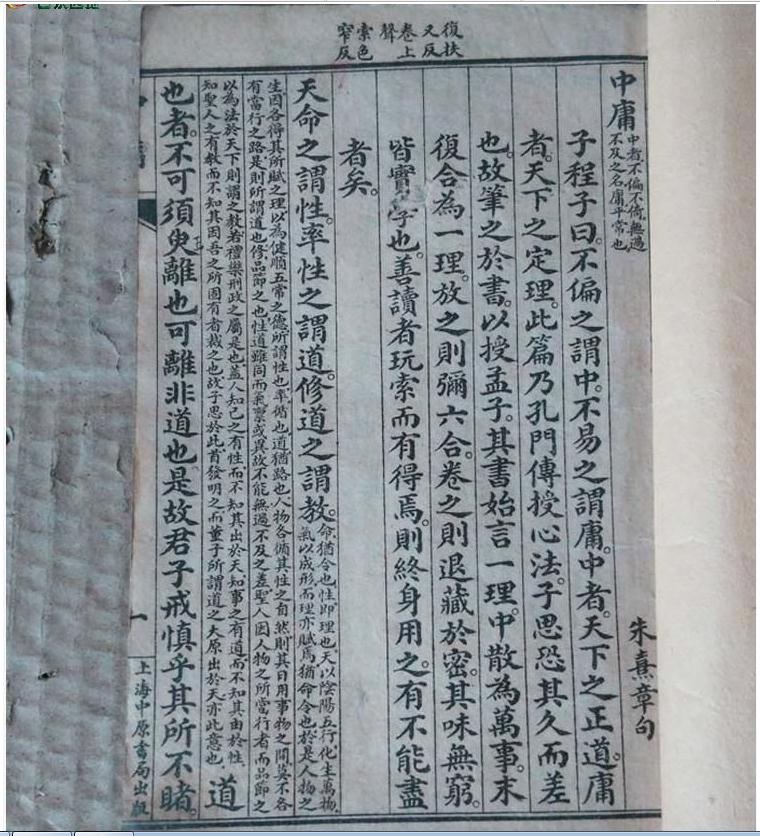 復扶
又反
卷上
聲
索色
窄反
中庸
中者不偏不倚無過
不及之名庸平常也
朱熹章句
子程子曰。不偏之謂中。不易之謂庸。中者。天下之正道。庸
者。天下之定理。此篇乃孔門傳授心法。子思恐其久而差
也。故筆之於書。以授孟子。其書始言一理。中散為萬事。末
復合為一理。放之則彌六合。卷之則退藏於密。其味無窮。
皆實學也。善讀者玩索而有得焉。則終身用之。有不能盡
者矣。
天命之謂性。率性之謂道。修道之謂教。
命猶令也性即理也天以陰陽五行化生萬物
氣以成形而理亦賦焉猶命令也於是人物之
生因各得其所賦之理以為健順五常之德所謂性也率循也道猶路也人物各循其性之自然則其日用事物之間莫不各
有當行之路是則所謂道也修品節之也性道雖同而氣稟或異故不能無過不及之差聖人因人物之所當行者而品節之
以為法於天下則謂之教若禮樂刑政之屬是也蓋人知己之有性而不知其出於天知事之有道而不知其由於性
知聖人之有教而不知其因吾之所固有者裁之也故子思於此首發明之而董子所謂道之大原出於天亦此意也
道
也者。不可須臾離也可離非道也是故君子戒慎乎其所不睹。
一
上海中原書局出版